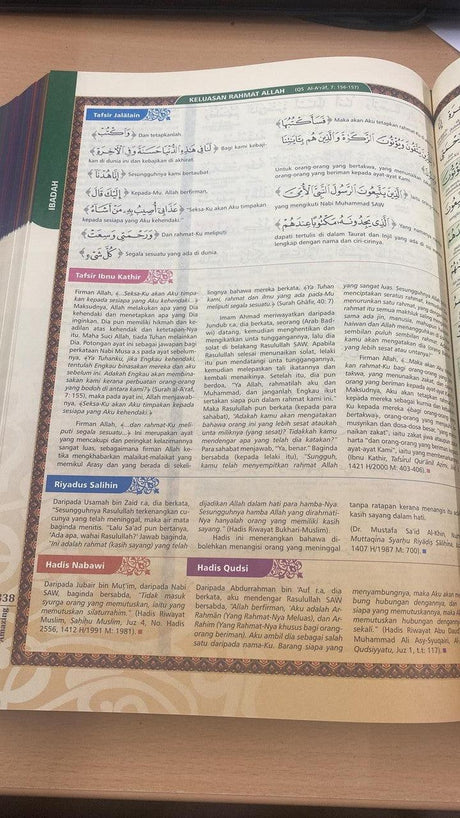 KELUASAN RAHMAT ALLAH (QS Al-A'raf, 7: 156-157)
IBADAH
Tafsir Jalalain
﴿وَٱكْتُبْ﴾ Dan tetapkanlah
﴿لَنَا فِي هَٰذِهِ ٱلدُّنْيَا حَسَنَةً وَفِي ٱلْءَاخِرَةِ﴾ Bagi kami kebaji-
kan di dunia ini dan kebajikan di akhirat.
﴿إِنَّا هُدْنَآ﴾ Sesungguhnya kami bertaubat
﴿إِلَيْكَ قَالَ﴾ Kepada-Mu. Allah berfirman,
﴿عَذَابِيٓ أُصِيبُ بِهِۦ مَنْ أَشَآءُ﴾ "Seksa-Ku akan Aku timpakan
kepada sesiapa yang Aku kehendaki.
﴿وَرَحْمَتِي وَسِعَتْ﴾ Dan rahmat-Ku meliputi
﴿كُلَّ شَيْءٍ﴾ Segala sesuatu yang ada di dunia.
﴿فَسَأَكْتُبُهَا﴾ Maka akan Aku tetapkan rahmat
Untuk orang-orang yang bertakwa, yang menunaikan
orang-orang yang beriman kepada ayat-ayat Kami.
﴿ٱلَّذِينَ يَتَّبِعُونَ ٱلرَّسُولَ ٱلنَّبِيَّ ٱلْأُمِّيَّ﴾
yang mengikuti Nabi Muhammad SAW
﴿ٱلَّذِي يَجِدُونَهُۥ مَكْتُوبًا عِندَهُمْ﴾ Yang namanya
dapati tertulis di dalam Taurat dan Injil yang ada di
lengkap dengan nama dan ciri-cirinya.
Tafsir Ibnu Kathir
Firman Allah, ﴾Seksa-Ku akan Aku timpa-
kan kepada sesiapa yang Aku kehendaki.﴿
Maksudnya, Allah melakukan apa yang Dia
kehendaki dan menetapkan apa yang Dia
inginkan. Dia pun memiliki hikmah dan ke-
adilan atas kehendak dan ketetapan-Nya
itu. Maha Suci Allah, tiada Tuhan melainkan
Dia. Potongan ayat ini sebagai jawapan bagi
perkataan Nabi Musa a.s pada ayat sebelum-
nya, ﴾Ya Tuhanku, jika Engkau kehendaki,
tentulah Engkau binasakan mereka dan aku
sebelum ini. Adakah Engkau akan membina-
sakan kami kerana perbuatan orang-orang
yang bodoh di antara kami?﴿ (Surah al-A'raf,
7: 155), maka pada ayat ini, Allah menjawab-
nya, ﴾Seksa-Ku akan Aku timpakan kepada
sesiapa yang Aku kehendaki.﴿
Firman Allah, ﴾...dan rahmat-Ku meli-
puti segala sesuatu.﴿ Ini merupakan ayat
yang mencakupi dan peringkat kelazimannya
sangat luas, sebagaimana firman Allah ke-
tika mengkhabarkan malaikat-malaikat yang
memikul Arasy dan yang berada di sekeli-
lingnya bahawa mereka berkata, ﴾Ya Tuhan
kami, rahmat dan ilmu yang ada pada-Mu
meliputi segala sesuatu.﴿ (Surah Ghafir, 40: 7).
Imam Ahmad meriwayatkan daripada
Jundub r.a, dia berkata, seorang (Arab Bad-
wi) datang, kemudian menghentikan dan
mengikatkan unta tunggangannya, lalu dia
solat di belakang Rasulullah SAW. Apabila
Rasulullah selesai menunaikan solat, lelaki
itu pun mendatangi unta tunggangannya,
kemudian melepaskan tali ikatannya dan
kembali menaikinya. Setelah itu, dia pun
berdoa, "Ya Allah, rahmatilah aku dan
Muhammad, dan janganlah Engkau ikut
sertakan siapa pun dalam rahmat kami ini."
Maka Rasulullah pun berkata (kepada para
sahabat), "Adakah kamu akan mengatakan
bahawa orang ini yang lebih sesat ataukah
unta miliknya (yang sesat)? Tidakkah kamu
mendengar apa yang telah dia katakan?"
Para sahabat menjawab, "Ya, benar." Baginda
bersabda (kepada lelaki itu), "Sungguh,
kamu telah menyempitkan rahmat Allah
yang sangat luas. Sesungguhnya
menciptakan seratus rahmat,
menurunkan satu rahmat, yang
rahmat itu semua makhluk saling
sama ada jin, manusia, mahupun
haiwan dan Allah menangguhkan
sembilan puluh sembilan rahmat
kamu akan mengatakan dia
yang lebih sesat atau untanya?"
Firman Allah, ﴾...Maka akan
kan rahmat-Ku bagi orang-orang
takwa, yang menunaikan zakat
orang yang beriman kepada ayat-
Maksudnya, Aku akan menetapkan
kepada mereka sebagai
Ku kepada mereka ﴾bagi orang-
bertakwa﴿, orang-orang yang
musyrikan dan dosa-dosa besar,
naikan zakat﴿, iaitu zakat
harta "dan orang-orang yang beriman
ayat-ayat Kami", iaitu yang
(Ibnu Kathir, Tafsirul Qur'anil Azim,
1421 H/2000 M: 403-406). ■
Riyadus Salihin
Daripada Usamah bin Zaid r.a, dia berkata,
"Sesungguhnya Rasulullah terkenangkan cu-
cunya yang telah meninggal, maka air mata
baginda menitis. "Lalu Sa'ad pun bertanya,
'Ada apa, wahai Rasulullah?' Jawab baginda,
"Ini adalah rahmat (kasih sayang) yang telah
dijadikan Allah dalam hati para hamba-Nya.
Sesungguhnya hamba Allah yang dirahmati-
Nya hanyalah orang yang memiliki kasih
sayang." (Hadis Riwayat Bukhari-Muslim).
Hadis ini menerangkan bahawa di-
bolehkan menangisi orang yang meninggal
tanpa ratapan kerana menangis itu
kasih sayang dalam hati.
(Dr. Mustafa Sa'id Al-Khin,
Muttaqina Syarhu Riyadis Salihina,
1407 H/1987 M: 700). ■
Hadis Nabawi
Daripada Jubair bin Mut'im, daripada Nabi
SAW, baginda bersabda, "Tidak masuk
syurga orang yang memutuskan, iaitu yang
memutuskan silaturrahim." (Hadis Riwayat
Muslim, Sahihu Muslim, Juz 4, No. Hadis
2556, 1412 H/1991 M: 1981). ■
Hadis Qudsi
Daripada Abdurrahman bin 'Auf r.a, dia
berkata, aku mendengar Rasulullah SAW
bersabda, "Allah berfirman, 'Aku adalah Ar-
Rahman (Yang Rahmat-Nya Meluas), dan Ar-
Rahim (Yang Rahmat-Nya khusus bagi orang-
orang beriman). Aku ambil dia sebagai salah
satu daripada nama-Ku. Barang siapa yang
menyambungnya, maka Aku akan
bung hubungan dengannya, dan
siapa yang memutuskannya, maka
memutuskan hubungan dengannya
sekali." (Hadis Riwayat Abu Daud,
Muhammad Ali Asy-Syuqairi,
Qudsiyyatu, Juz 1, t.t: 117). ■
338